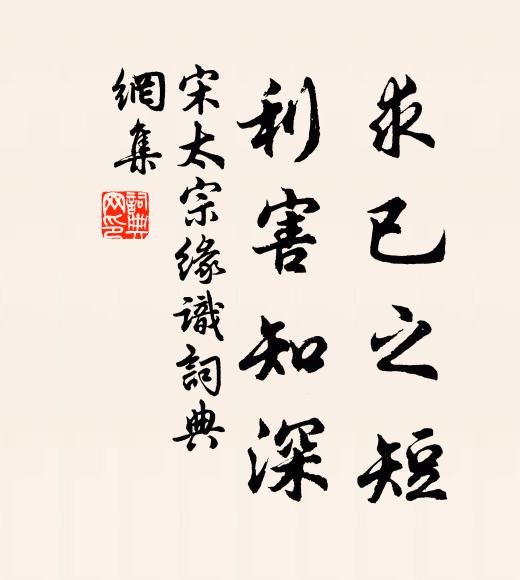 求已之短
利害知深
宋太宗缘識詞典
網集
詞典
网印